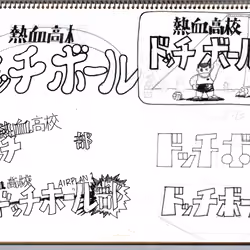 熱血高校
ドッチボール
熱血高校
ドッチボール
熱血高校
ッチ
部
ドッチボ
高校
AIRPLAN
ドッチボール部
ドッチボール